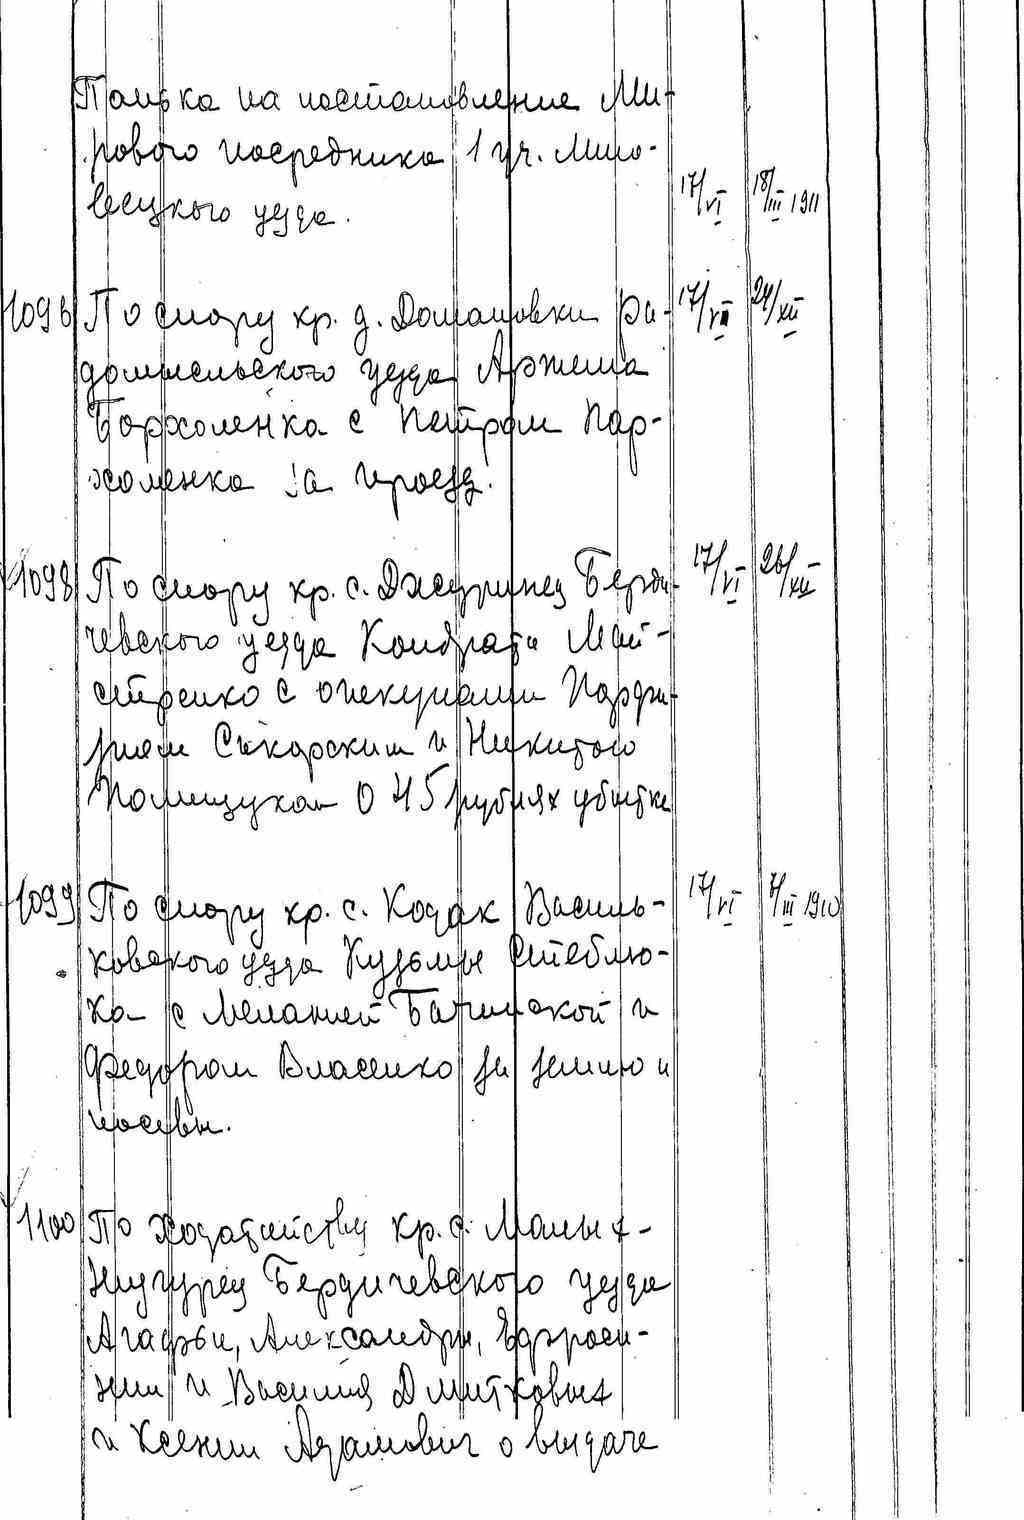 Панька на постановление Ми-
рового посредника 1 уч. Липо-
вецкого уезда. 17/VI 18/III 1911
1096 По спору кр. д. Домановки Ра- 17/VII 24/XII
домысльского уезда Артема
Пархоменка с Петром Пар-
хоменка за проезд.
1098 По спору кр. с. Джуринец Берди- 17/VI 26/XII
чевского уезда Кондрата Май-
стренко с опекунами Парфи-
рием Сикорским и Никитою
Полищуком о 45 рублях убытка
1099 По спору кр. с. Кодак Василь- 17/VI 7/III 1910
ковского уезда Кузьмы Стеблю-
ка с Меланией Бачинской и
Федором Власенко за землю и
посевы.
1100 По ходатайству кр. с. Малых-
Низгурец Бердичевского уезда
Агафьи, Александры, Ефроси-
нии и Василия Дмитковых
и Ксении Адамович о выдаче